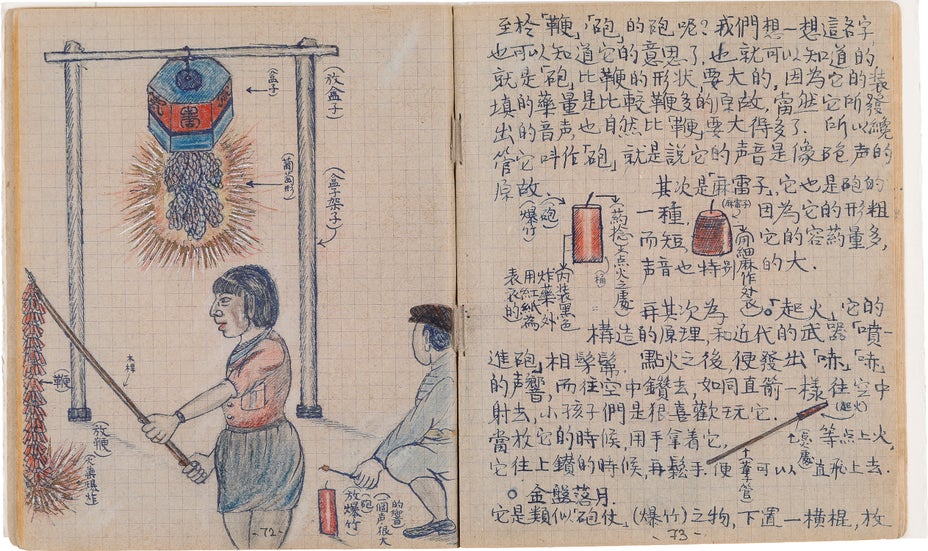 (放盒子)
(盒子)
(葡萄形)
(盒子架子)
木棒
鞭
放鞭
放爆竹
(砲)
(一個声很大
的響)
-72-
至於「鞭」「砲」的砲呢?我們想一想這名字
也可以知道它的意思了,也就可以知道的,
就是「砲」比鞭的形状要大的,因為它的装
填的藥量是比較鞭多的原故,當然它所發
出的音声,也自然比「鞭」要大得多了.所以纔
管它叫作「砲」就是說它的声音是像砲声的
原故.
其次是「麻雷子」,它也是砲的
一種.因為它的形粗
而短,它的容葯量多,
声音也特别的大.
(砲)
(爆竹)
葯捻
点火之處
(桶)
内装黑色
炸藥外
用紅紙為
表衣的
(麻雷子)
用細麻作外衣
再其次為「起火」它的
構造的原理,和近代的武器「噴-
進砲」相髣髴.點火之後,便發出「哧」「哧」
的声響,而往空中鑽去,如同直箭一樣往空中
射去,小孩子們是很喜歡玩它.
(起火)
點處
葦管
當放它的時候,用手拿着它,等点上火,
它往上鑽的時候,再鬆手便可以一直飛上去.
○金盤落月.
它是類似「砲仗」(爆竹)之物,下置一横棍,放
-73-